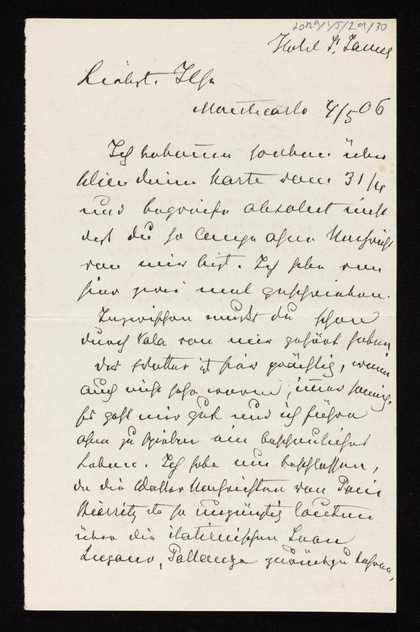 2012/1/5/29/30
Hotel St. James
Liebste Ilse
Montecarlo 4/5 06
Ich bekomme soeben über
Wien deine Karte vom 31/4
und begreife absolut nicht
daß du so lange ohne Nachricht
von mir bist. Ich habe von
hier zwei mal geschrieben.
Inzwischen mußt du schon
durch Vala von mir gehört haben
Das Wetter ist hier prächtig, wenn
auch nicht sehr warm, immer sonnig.
Es geht mir gut und ich führe
ohne zu spielen ein beschauliches
Leben. Ich habe nun beschlossen,
da die Wetter Nachrichten von Paris
Biarritz etc so ungünstig lauten
über die italienischen Seen
Lugano, Pallanza zurückzukehren,